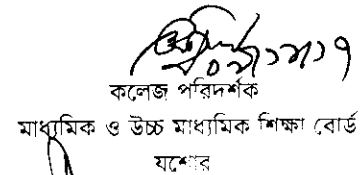 কলেজ পরিদর্শক
মাধ্যমিক ও উচ্চ মাধ্যমিক শিক্ষা বোর্ড
যশোর